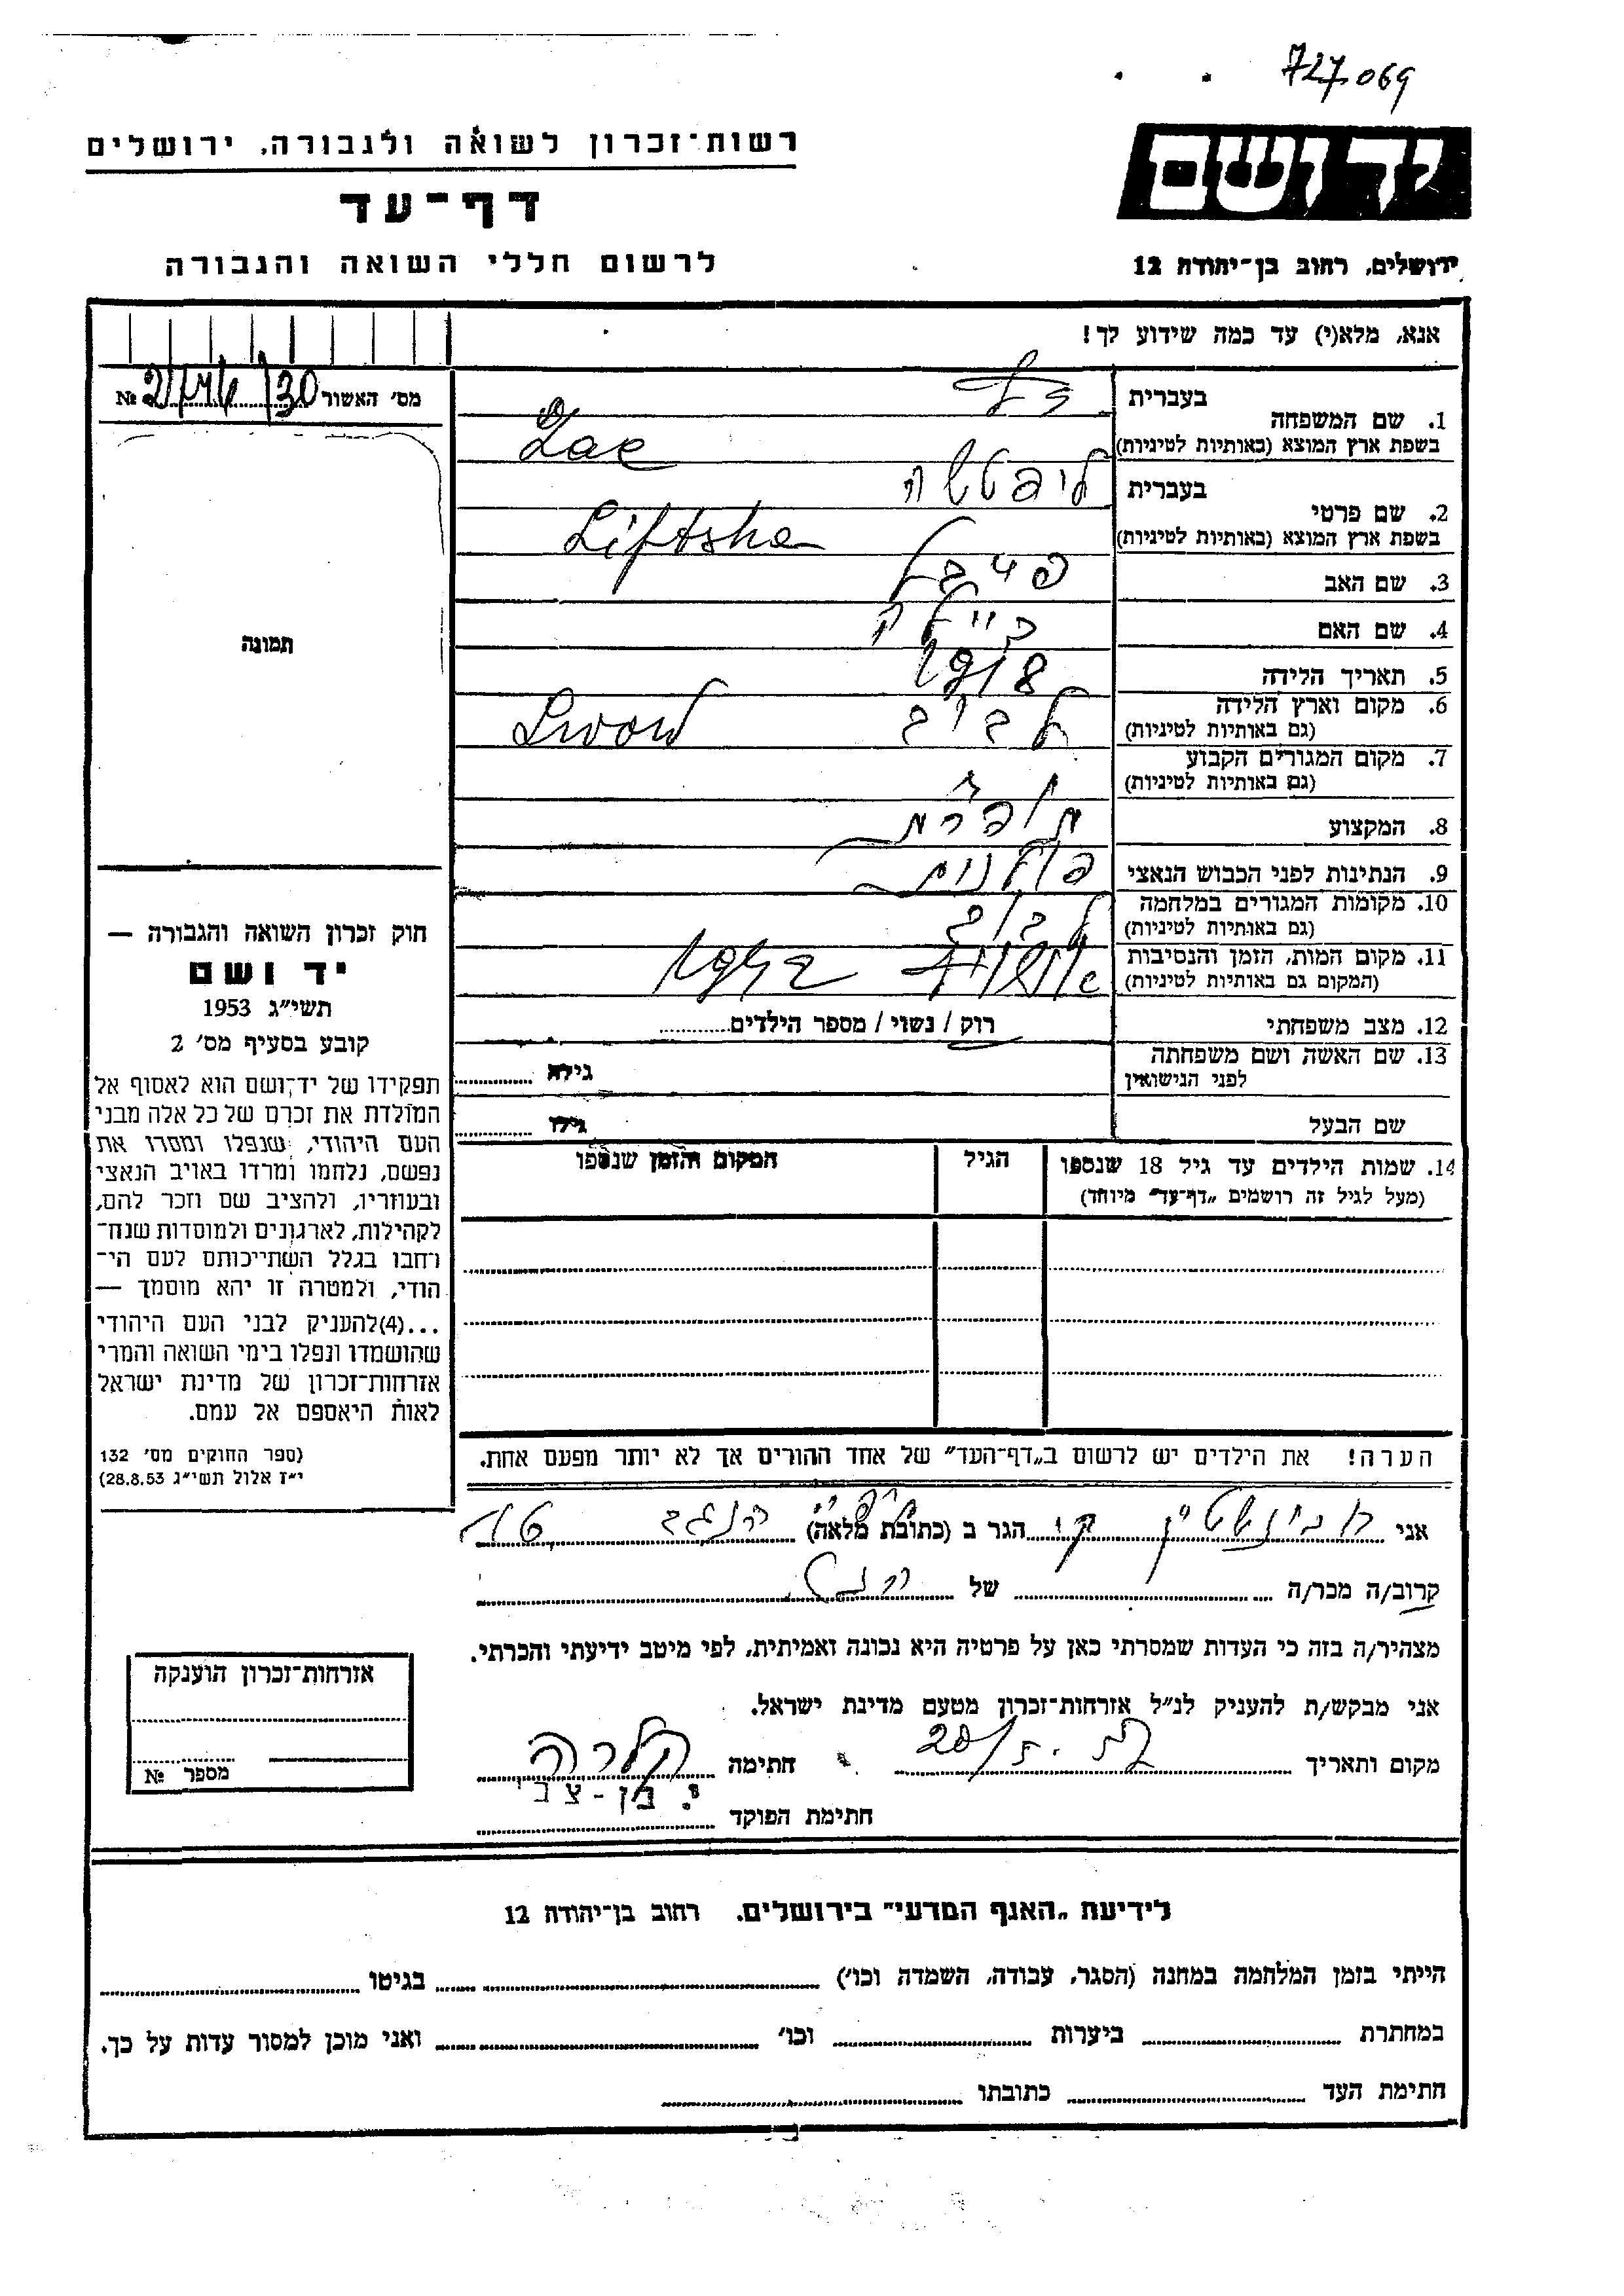 727069
יד ושם
רשות־זכרון לשואה ולגבורה, ירושלים
דף־עד
לרשום חללי השואה והגבורה
ירושלים, רחוב בן־יהודה 12
אנא, מלא(י) עד כמה שידוע לך!
מס׳ האשור №
תמונה
חוק זכרון השואה והגבורה —
יד ושם
תשי״ג 1953
קובע בסעיף מס׳ 2
תפקידו של יד־ושם הוא לאסוף אל
המולדת את זכרם של כל אלה מבני
העם היהודי, שנפלו ומסרו את
נפשם, נלחמו ומרדו באויב הנאצי
ובעוזריו, ולהציב שם וזכר להם,
לקהילות, לארגונים ולמוסדות שנח־
רחבו בגלל השתייכותם לעם הי־
הודי, ולמטרה זו יהא מוסמך —
...(4)להעניק לבני העם היהודי
שהושמדו ונפלו בימי השואה והמרי
אזרחות־זכרון של מדינת ישראל
לאות היאספם אל עמם.
(ספר החוקים מס׳ 132
י״ז אלול תשי״ג 28.8.53)
1. שם המשפחה
בעברית
בשפת ארץ המוצא (באותיות לטיניות)
2. שם פרטי
בעברית ליפטשה
בשפת ארץ המוצא (באותיות לטיניות) Liftsha
3. שם האב
4. שם האם
5. תאריך הלידה
6. מקום וארץ הלידה
(גם באותיות לטיניות) לבוב Lwow
7. מקום המגורים הקבוע
(גם באותיות לטיניות)
8. המקצוע תופרת
9. הנתינות לפני הכבוש הנאצי פולנית
10. מקומות המגורים במלחמה
(גם באותיות לטיניות) לבוב
11. מקום המות, הזמן והנסיבות
(המקום גם באותיות לטיניות)
12. מצב משפחתי רוק / נשוי / מספר הילדים
13. שם האשה ושם משפחתה
לפני הנישואין גילה
שם הבעל גילו
14. שמות הילדים עד גיל 18 שנספו
(מעל לגיל זה רושמים „דף־עד״ מיוחד)
הגיל
המקום והזמן שנספו
הערה! את הילדים יש לרשום ב„דף־העד״ של אחד ההורים אך לא יותר מפעם אחת.
אני הגר ב (כתובת מלאה)
קרוב/ה מכר/ה של
מצהיר/ה בזה כי העדות שמסרתי כאן על פרטיה היא נכונה ואמיתית, לפי מיטב ידיעתי והכרתי.
אני מבקש/ת להעניק לנ״ל אזרחות־זכרון מטעם מדינת ישראל.
מקום ותאריך חתימה קלרה
חתימת הפוקד י. בן-צבי
אזרחות־זכרון הוענקה
מספר №
לידיעת „האגף המדעי״ בירושלים. רחוב בן־יהודה 12
הייתי בזמן המלחמה במחנה (הסגר, עבודה, השמדה וכו׳) בגיטו
במחתרת ביערות וכו׳ ואני מוכן למסור עדות על כך.
חתימת העד כתובתו